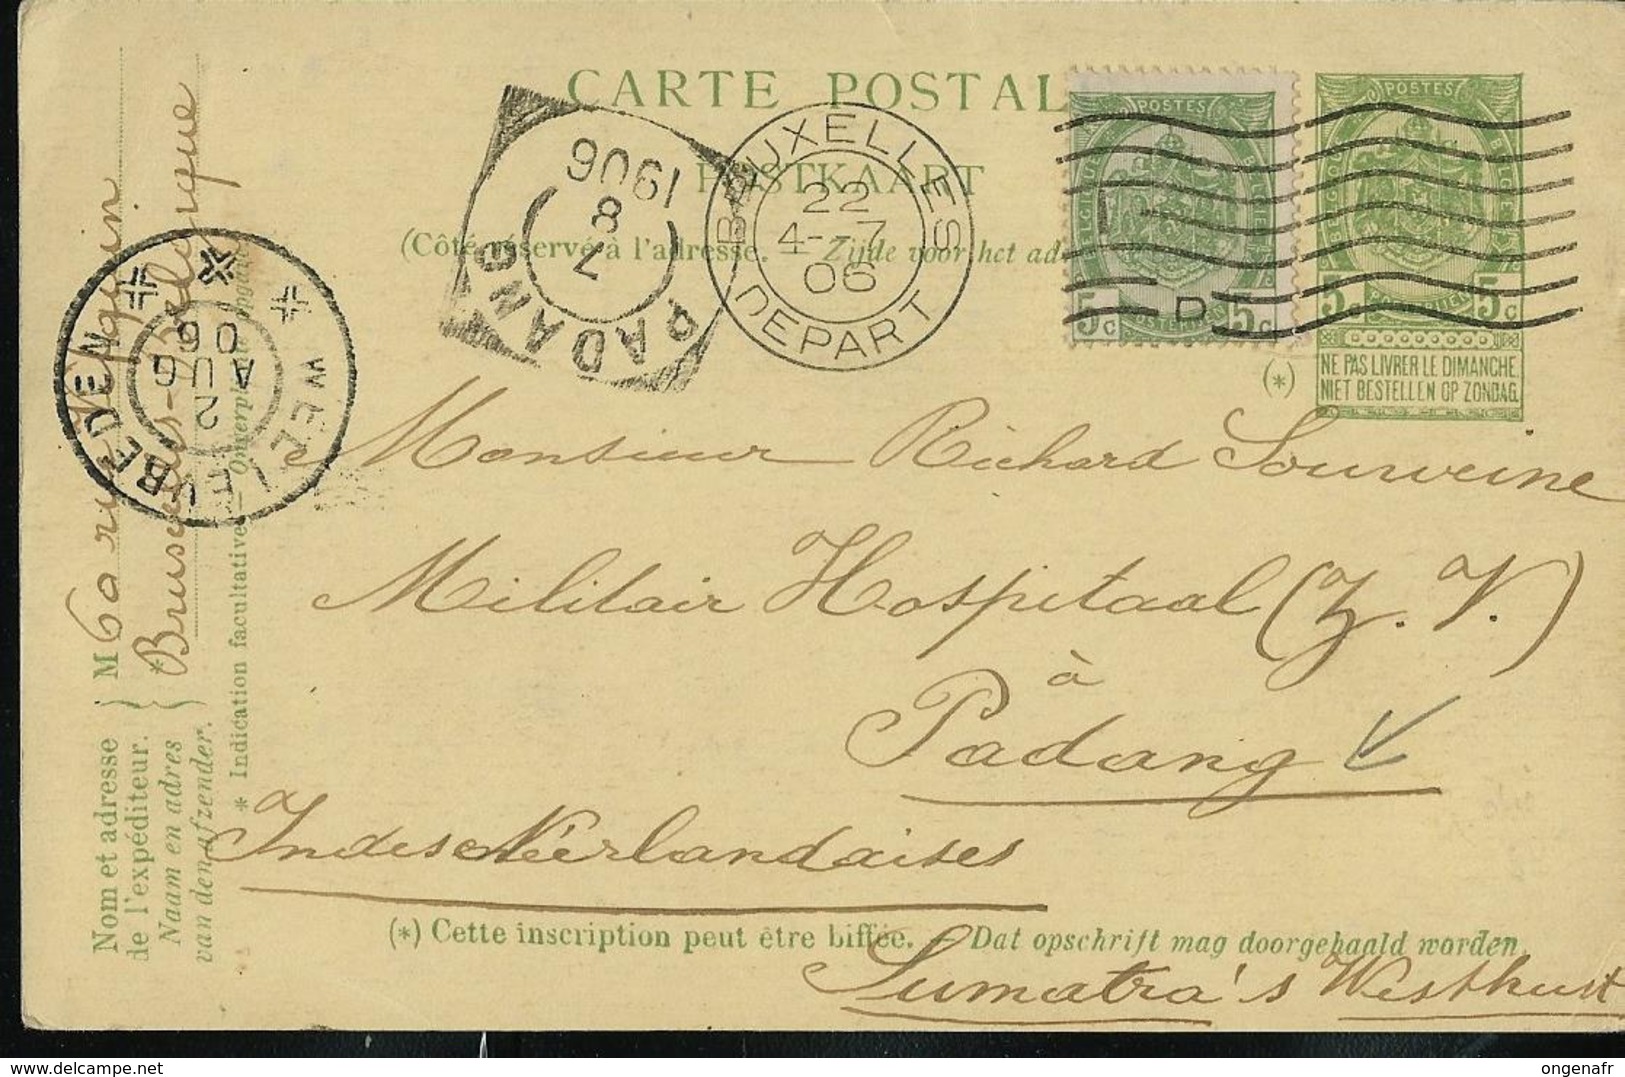 CARTE POSTAL
POSTKAART
(Côté réservé à l'adresse. — Zijde voor het ad
PADANG
7
8
1906
BRUXELLES
22
4--7
06
DEPART
POSTES
BELGIQUE
5c
5c
D
POSTES
BELGIQUE
5c POSTERIJEN 5c
NE PAS LIVRER LE DIMANCHE
NIET BESTELLEN OP ZONDAG.
(*)
WELTEVREDEN
2
AUG
06
Monsieur Richard Sourweine
Militair Hospitaal (Z. V.)
à
Padang
Indes Néerlandaises
(*) Cette inscription peut être biffée. — Dat opschrift mag doorgehaald worden.
Sumatra's Westkust
Nom et adresse
de l'expéditeur.
Naam en adres
van den afzender.
M 60 rue
Bruxelles-Belgique
* Indication facultative —
ongenafr